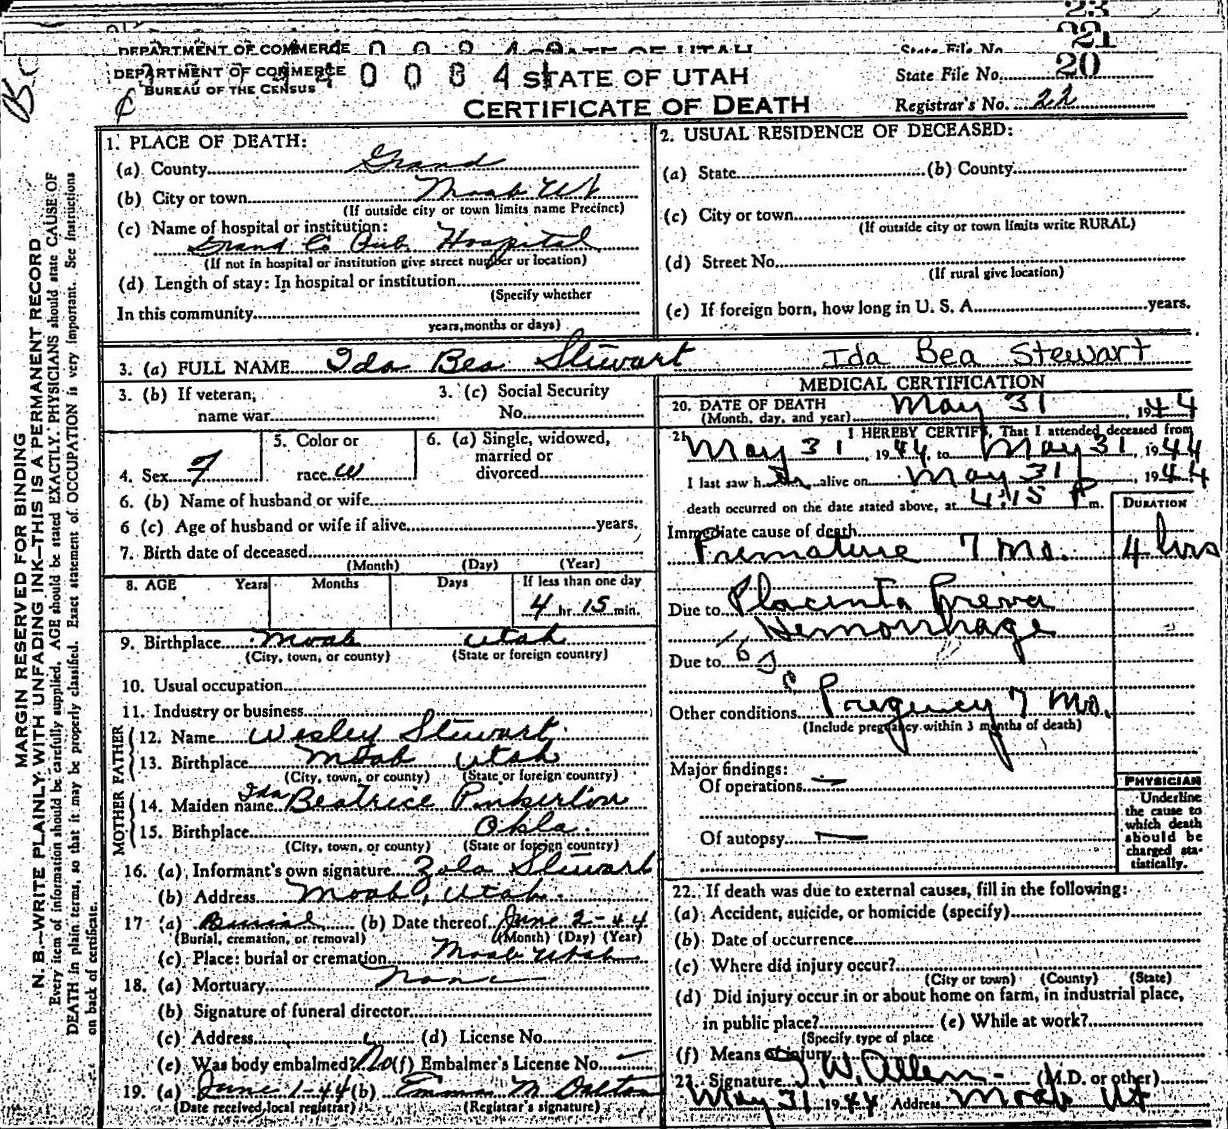 23
DEPARTMENT OF COMMERCE STATE OF UTAH State File No. 21
DEPARTMENT OF COMMERCE STATE OF UTAH State File No. 20
BUREAU OF THE CENSUS CERTIFICATE OF DEATH Registrar's No. 22
1. PLACE OF DEATH:
(a) County Grand
(b) City or town Moab Ut
(If outside city or town limits name Precinct)
(c) Name of hospital or institution:
Grand Co Pub. Hospital
(If not in hospital or institution give street number or location)
(d) Length of stay: In hospital or institution
(Specify whether
In this community
years, months or days)
2. USUAL RESIDENCE OF DECEASED:
(a) State (b) County
(c) City or town
(If outside city or town limits write RURAL)
(d) Street No.
(If rural give location)
(e) If foreign born, how long in U. S. A. years.
3. (a) FULL NAME Ida Bea Stewart Ida Bea Stewart
3. (b) If veteran, name war
3. (c) Social Security No.
4. Sex F
5. Color or race W
6. (a) Single, widowed, married or divorced
6. (b) Name of husband or wife
6 (c) Age of husband or wife if alive years.
7. Birth date of deceased
(Month) (Day) (Year)
8. AGE Years Months Days If less than one day
4 hr. 15 min.
9. Birthplace Moab Utah
(City, town, or county) (State or foreign country)
10. Usual occupation
11. Industry or business
FATHER
12. Name Wesley Stewart
13. Birthplace Moab Utah
(City, town, or county) (State or foreign country)
MOTHER
14. Maiden name Ida Beatrice Pinkerton
15. Birthplace Okla.
(City, town, or county) (State or foreign country)
16. (a) Informant's own signature Zola Stewart
(b) Address Moab, Utah.
17 (a) Burial (b) Date thereof June 2-44
(Burial, cremation, or removal) (Month) (Day) (Year)
(c) Place: burial or cremation Moab Utah
18. (a) Mortuary None
(b) Signature of funeral director
(c) Address (d) License No.
(e) Was body embalmed? No (f) Embalmer's License No. —
19. (a) June 1-44 (b) Emma M. Dalton
(Date received local registrar) (Registrar's signature)
MEDICAL CERTIFICATION
20. DATE OF DEATH May 31, 1944
(Month, day, and year)
21 I HEREBY CERTIFY, That I attended deceased from
May 31, 1944, to May 31, 1944
I last saw h alive on May 31, 1944
death occurred on the date stated above, at 4:15 P m.
DURATION
Immediate cause of death
Premature 7 Mo. 4 hrs
Due to Placinta Previa
Hemorrhage
Due to
Other conditions Pregency 7 Mo.
(Include pregnancy within 3 months of death)
Major findings:
Of operations —
Of autopsy —
PHYSICIAN
Underline
the cause to
which death
should be
charged sta-
tistically.
22. If death was due to external causes, fill in the following:
(a) Accident, suicide, or homicide (specify)
(b) Date of occurrence
(c) Where did injury occur?
(City or town) (County) (State)
(d) Did injury occur in or about home on farm, in industrial place,
in public place? (e) While at work?
(Specify type of place
(f) Means of injury
23. Signature I. W. Allen (M.D. or other)
May 31 1944 Address Moab Ut
MARGIN RESERVED FOR BINDING
N. B.—WRITE PLAINLY WITH UNFADING INK—THIS IS A PERMANENT RECORD
Every item of information should be carefully supplied. AGE should be stated EXACTLY. PHYSICIANS should state CAUSE OF
DEATH in plain terms, so that it may be properly classified. Exact statement of OCCUPATION is very important. See instructions
on back of certificate.